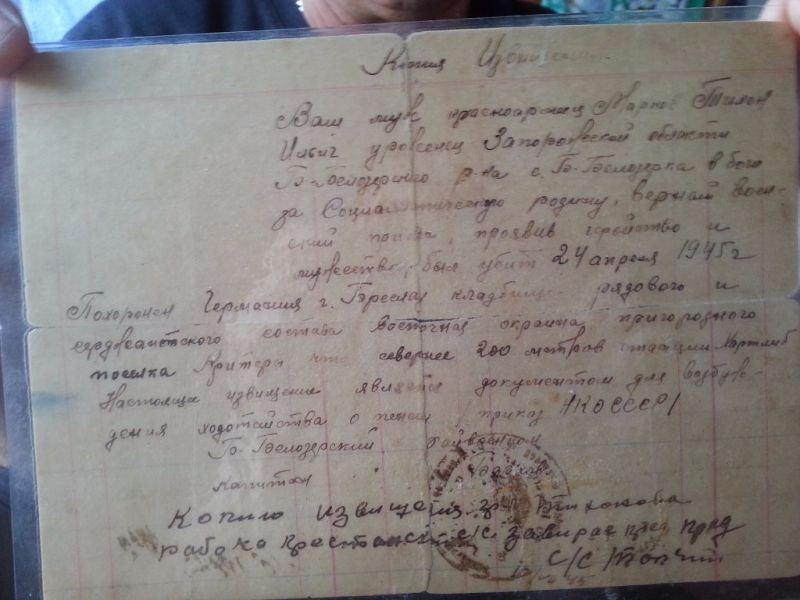 Копия Извищения
Ваш муж красноармиец Марков Тихон
Ильич уроженец Запорожской области
Б-Белозерского р-на с. Б-Белозерка в бою
за Социалистическую родину, верный воен-
ский присяги, проявив геройство и
мужество, был убит 24 апреля 1945 г
Похоронен Германия г. Бреслау кладбище рядового и
сержантского состава восточная окраина пригородного
поселка Критеры что севернее 200 метров станции Хартлиб
Настояще извищение является документом для возбуж-
дения ходотайства о пенсии / приказ НКО СССР /
Б-Белозерский райвоенком
капитан
Копию извищения
рабоко крестьянский с/с заверает пред
с/с